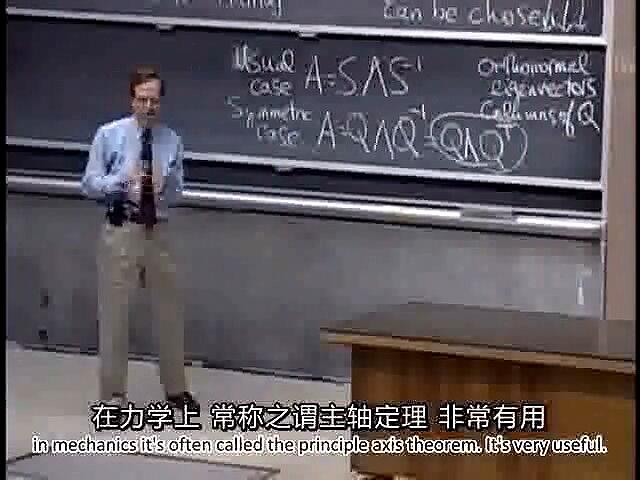 can be chosen ⊥⊥
Usual case A=SΛS⁻¹
Symmetric case A=QΛQ⁻¹=QΛQᵀ
Orthonormal
eigenvectors
Columns of Q
在力学上 常称之谓主轴定理 非常有用
in mechanics it's often called the principle axis theorem. It's very useful.